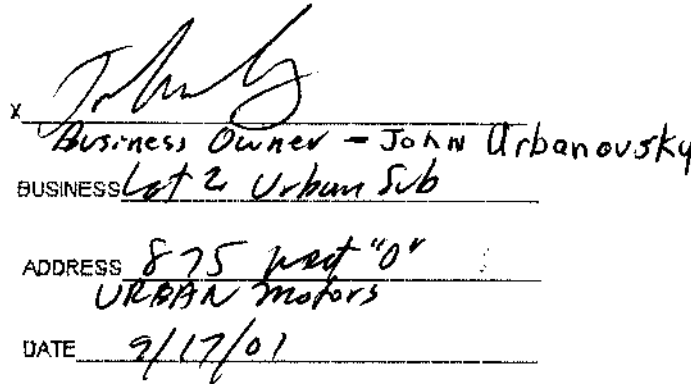 X
Business Owner - John Urbanovsky
BUSINESS Lot 2 Urban Sub
ADDRESS 875 West "O"
URBAN motors
DATE 9/17/01